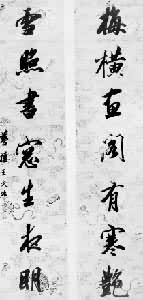 梅橫画閣有寒艷
雪照書窓生夜明
夢樓王文治